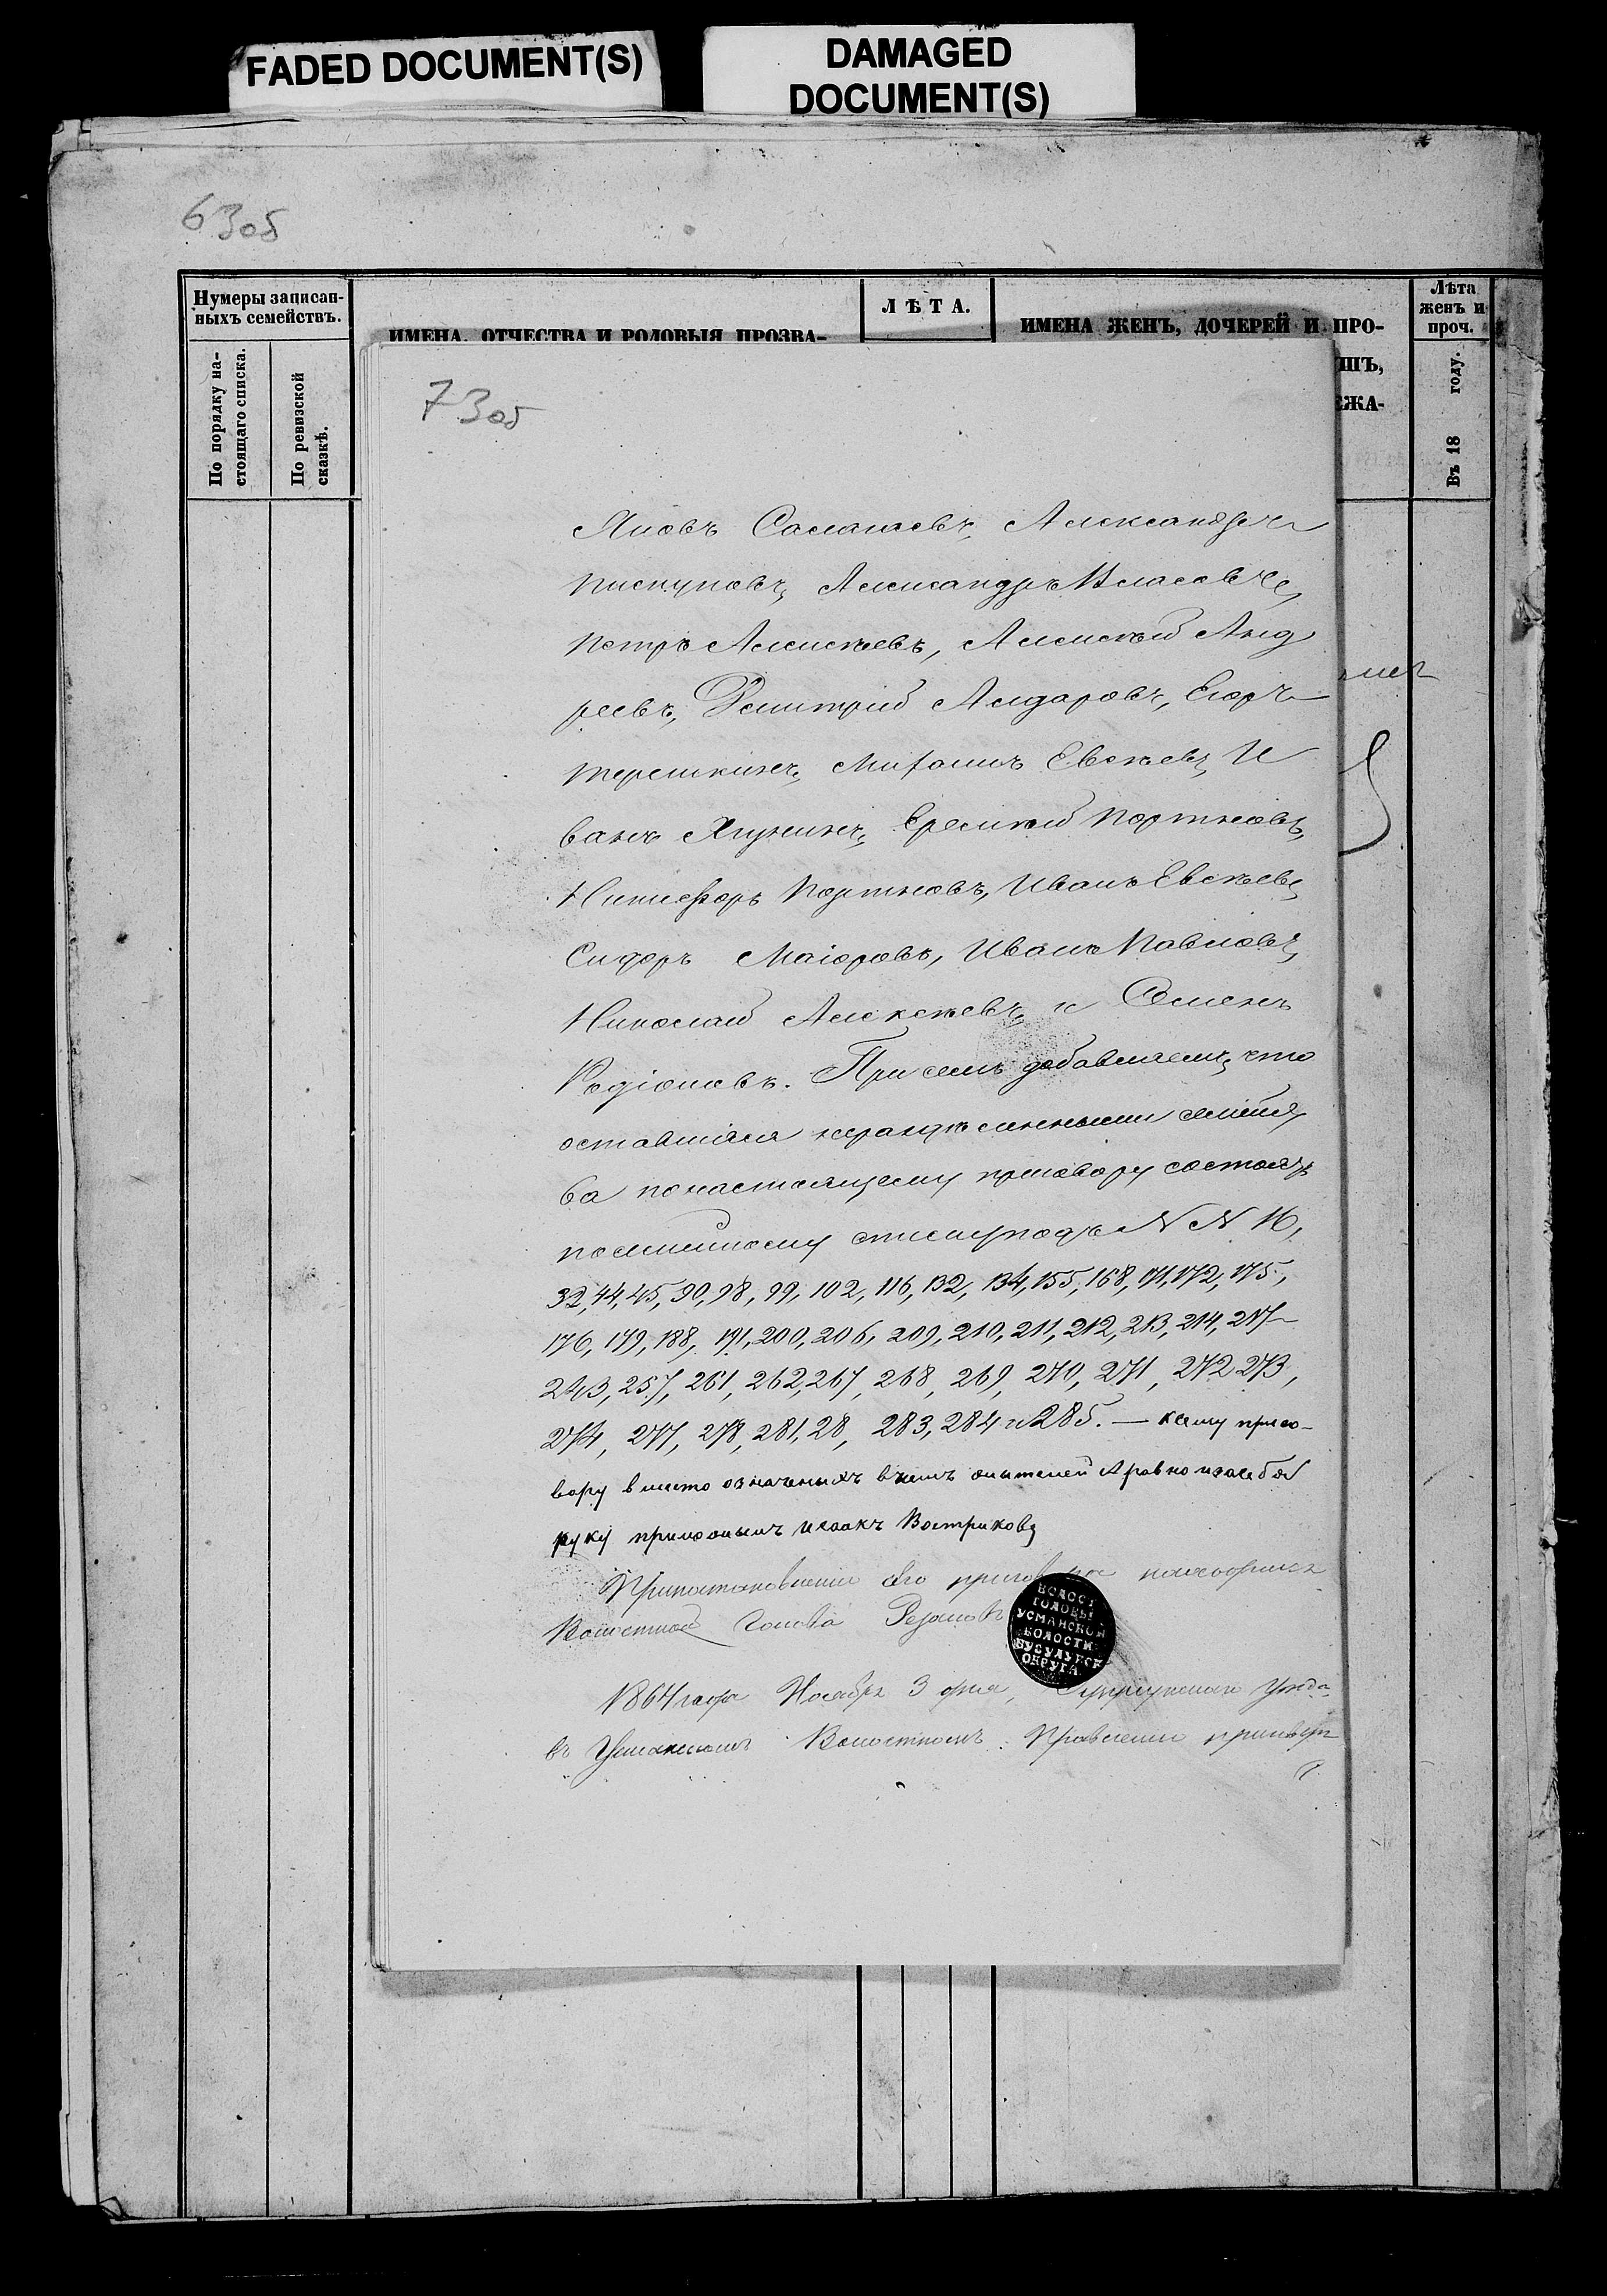 FADED DOCUMENT(S)
DAMAGED
DOCUMENT(S)
63об
Нумеры записан-
ныхъ семействъ.
По порядку на-
стоящаго списка.
По ревизской
сказкѣ.
ИМЕНА, ОТЧЕСТВА И РОДОВЫЯ ПРОЗВА-
ЛѢТА.
ИМЕНА ЖЕНЪ, ДОЧЕРЕЙ И ПРО-
ШЪ,
ЕЖА-
Лѣта
женъ и
проч.
Въ 18 году.
73об
Яковъ Саламаевъ, Александръ
Пискуновъ, Александръ Власовъ,
Петръ Алексѣевъ, Алексѣй Анд
реевъ, Дмитрій Айдаровъ, Егоръ
Терешкинъ, Михаилъ Евсѣевъ, И
ванъ Ягунинъ, Еремѣй Портновъ,
Никифоръ Портновъ, Иванъ Евсѣевъ,
Сидоръ Маіоровъ, Иванъ Павловъ,
Николай Алексѣевъ и Семенъ
Родіоновъ. При семъ добавляемъ, что
оставшіяся нераздѣленными семѣйс
ва по настоящему приговору состоятъ
по семѣйному списку подъ NN 16,
32, 44, 45, 90, 98, 99, 102, 116, 132, 134, 155, 168, 171, 172, 175,
176, 179, 188, 191, 200, 206, 209, 210, 211, 212, 213, 214, 217
243, 257, 261, 262, 267, 268, 269, 270, 271, 272 273,
274, 277, 278, 281, 28, 283, 284 и 285. — ксему приго-
вору вместо означеныхъ внемъ жителей А равно изасебя
руку приложылъ Исаакъ Востриковъ
При постановленіи сего приговора находился
Волостной Голова Резановъ
ВОЛОСТ
ГОЛОВЫ
УСМАНСКОЙ
ВОЛОСТИ
БУЗУЛУКСК
ОКРУГА
1864 года Ноября 3 дня, Бузулукскаго уѣзда
въ Усманскомъ Волостномъ Правленіи приговоръ